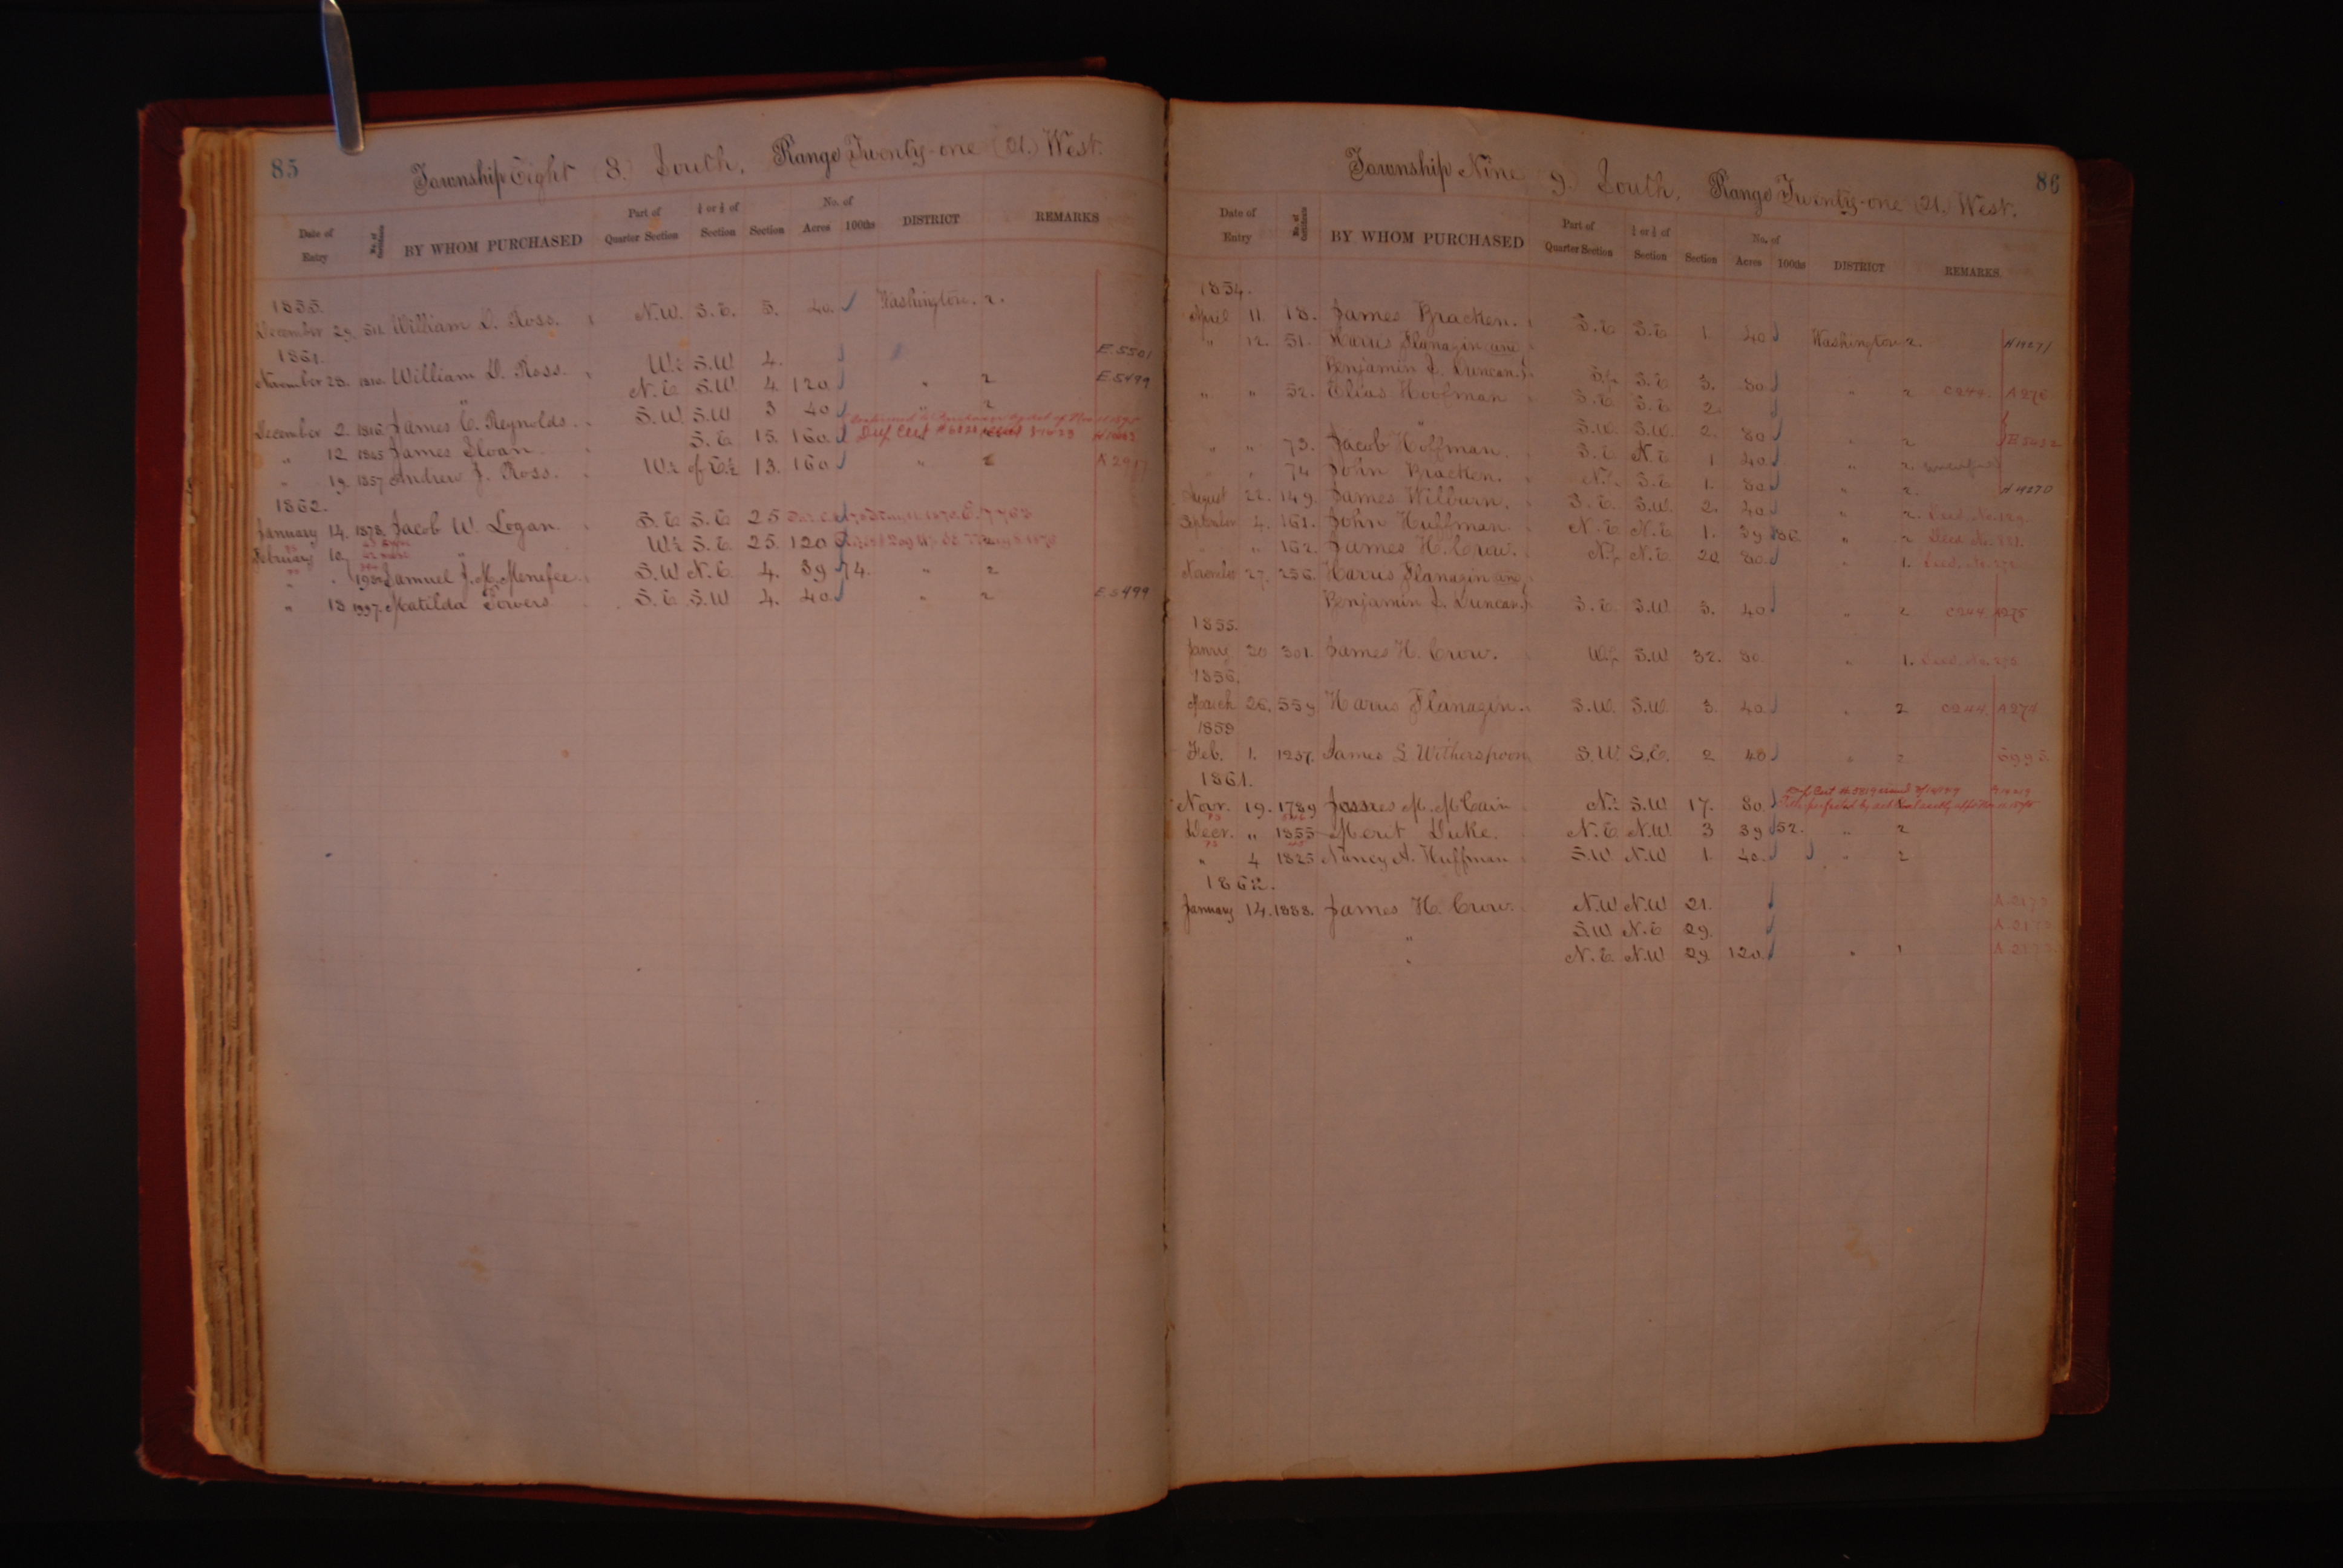 85
Township Eight (8.) South, Range Twenty-one (21.) West.
Date of Entry No. of Certificate BY WHOM PURCHASED Part of Quarter Section ¼ or ½ of Section Section No. of Acres 100ths DISTRICT REMARKS
1855.
December 29. 511. William D. Ross. N.W. S.E. 5. 40. Washington. 2.
1861.
November 23. 1810. William D. Ross. W½ S.W 4. E.5501
" N.E S.W 4. 120. " 2 E.5499
December 2. 1816. James C. Reynolds. S.W. S.W 3 40 " 2
" 12 1845 James Sloan. S.E 15. 160.
" 19. 1857 Andrew J. Ross. W½ of E½ 13. 160 " 2
1862.
January 14. 1878. Jacob W. Logan. S.E S.E 25
" W½ S.E. 25. 120
February 10 Samuel J. McMenefee. S.W N.E. 4. 39 74. " 2
" 13 1997. Matilda Towers S.E S.W 4. 40 " 2 E5499
86
Township Nine 9.) South, Range Twenty-one (21.) West.
Date of Entry No. of Certificate BY WHOM PURCHASED Part of Quarter Section ¼ or ½ of Section Section No. of Acres 100ths DISTRICT REMARKS.
1854.
April 11. 18. James Bracken. S.E S.E 1. 40 Washington 2.
" 12. 51. Harris Flanagin and
Benjamin L. Duncan. S½ S.E 3. 80. " 2 C244. A276
" " 52. Elias Hoofman S.E S.E 2.
" S.W. S.W. 2. 80 " 2
" " 73. Jacob Hoffman. S.E N.E 1 40 " 2.
" " 74 John Bracken. N½ S.E 1. 80 " 2. H14270
August 22. 149. James Wilburn. S.E. S.W. 2. 40 " 2.
September 4. 161. John Huffman N.E N.E 1. 39 86. " 2
" " 162. James H. Crow. N½ N.E 20 80. " 1.
November 27. 256. Harris Flanagin and
Benjamin L. Duncan. S.E S.W. 3. 40 " 2 C244 A275
1855.
Janry 20 301. James H. Crow. W½ S.W 32. 80. " 1.
1856.
March 26. 559 Harris Flanagin. S.W. S.W. 3. 40. " 2 C244. A274
1859
Feb. 1. 1257. James S Witherspoon S.W. S.E. 2 40 " 2
1861.
Novr. 19. 1789 N½ S.W 17. 80.
Decr. " 1855 Merit Duke. N.E N.W. 3 39 52. " 2
" 4 1825 Nancy A. Huffman S.W N.W 1. 40. " 2
1862.
January 14. 1888. James H. Crow. N.W N.W 21.
" S.W N.E 29.
" N.E. N.W 29 120. " 1